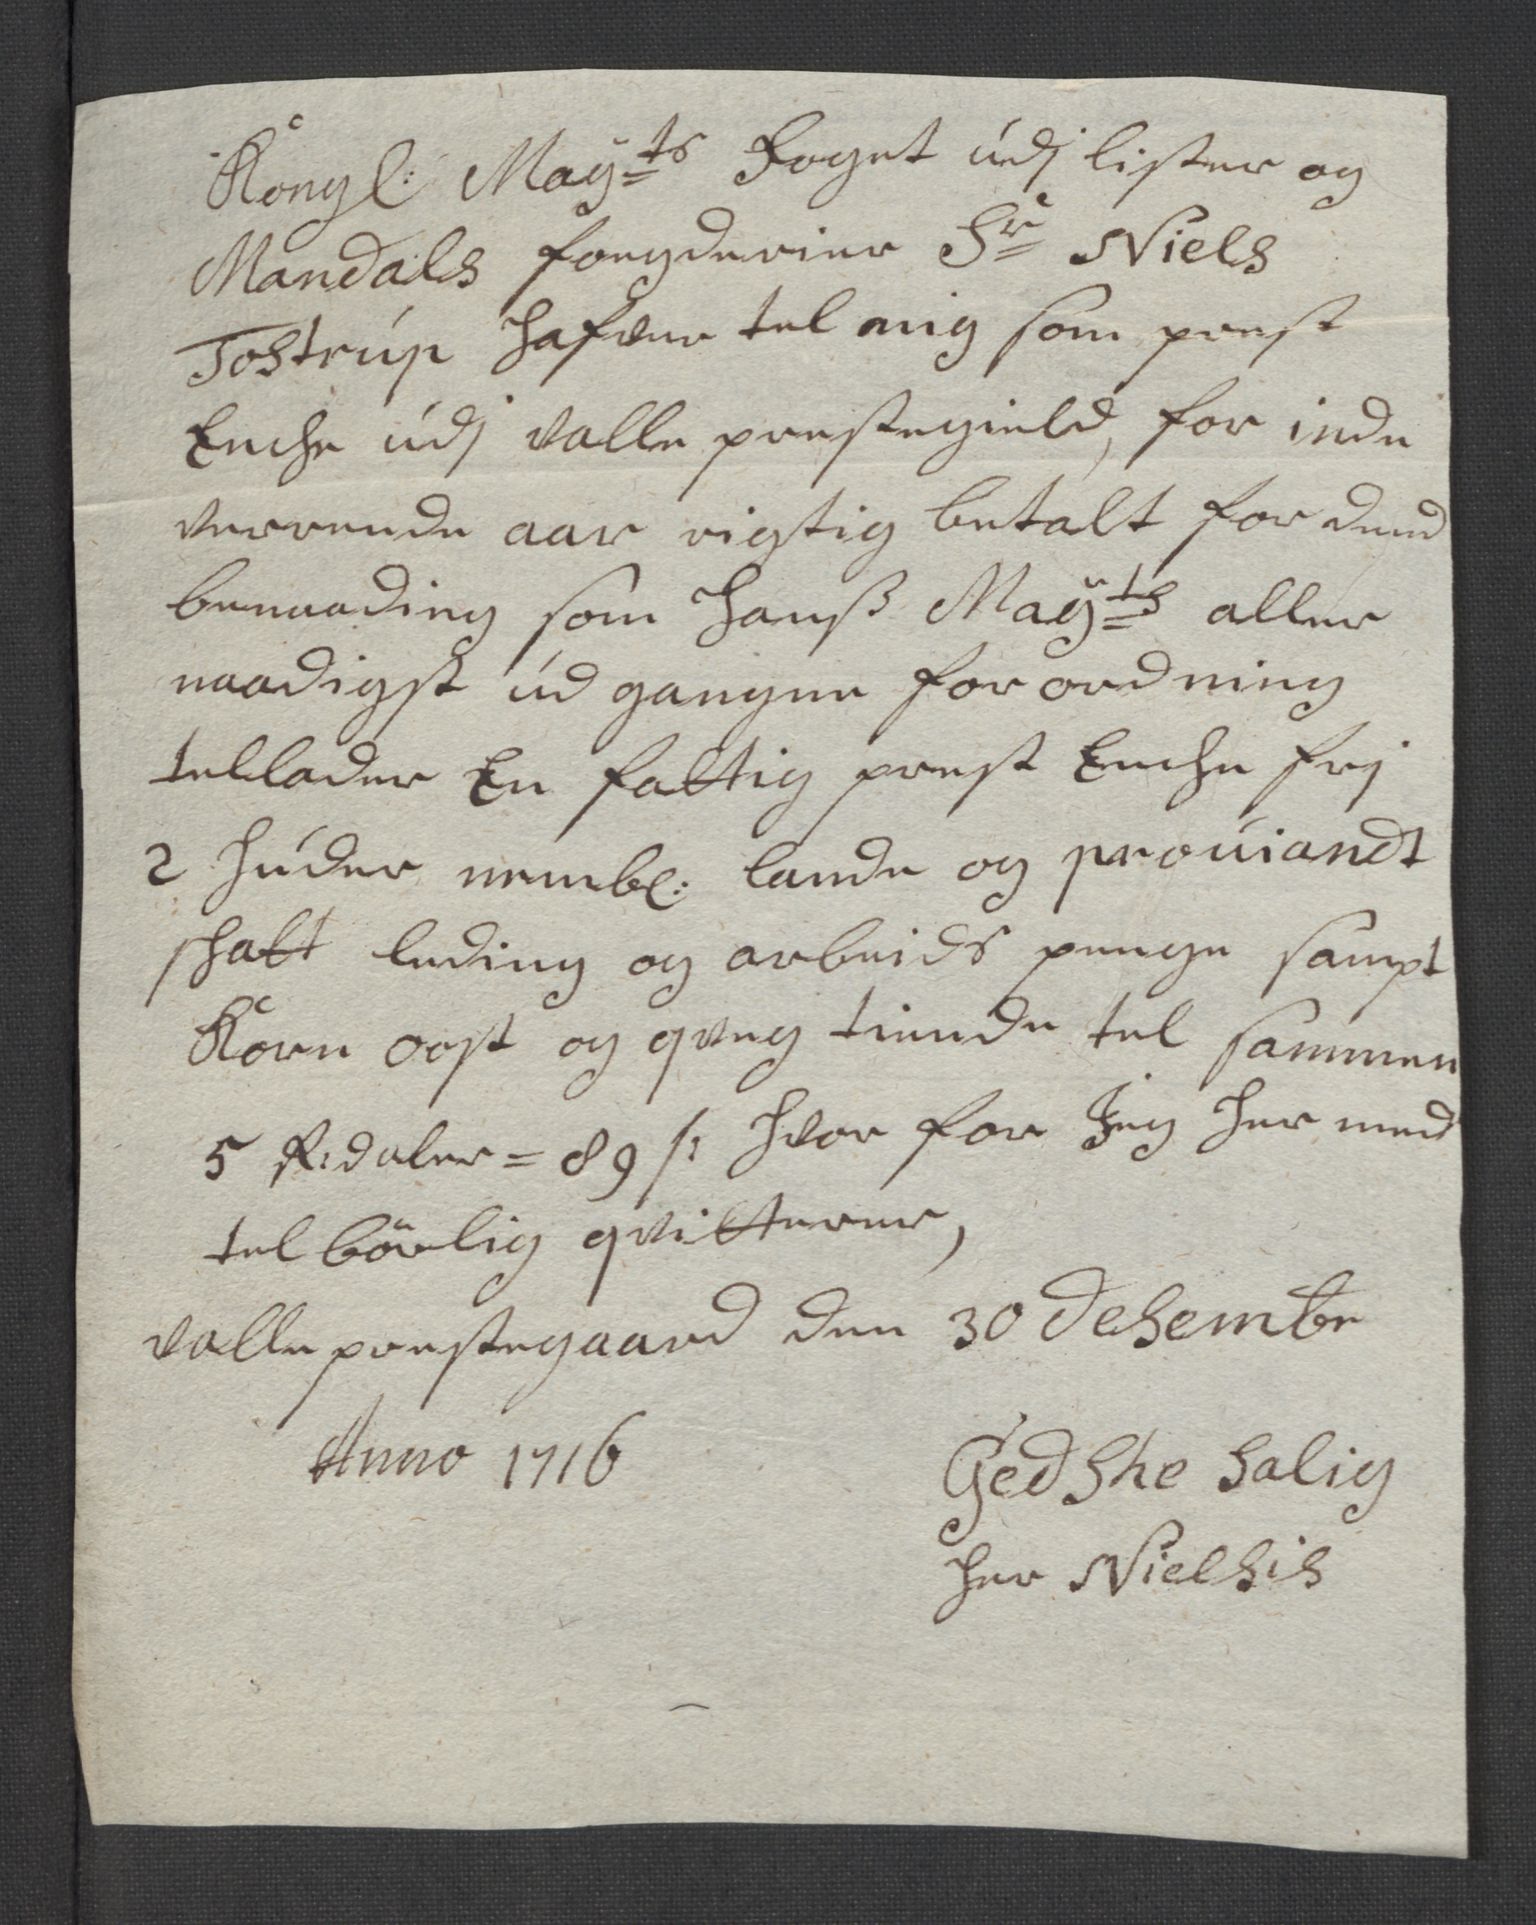 Kongl: Maÿts Foget udj lister og
Mandals fougderier Sr Niels
Tostrup hafver tel mig som prest
Enche udj valle prestegield, for inde
verrende aar rigtig betalt for dend
benaading som Hanß Maÿts aller
naadigst ud gangne forordning
tellader En fattig prest Enche frj
2 huder nembl: lande og proviandt
skatt leding og arbeids penge sampt
Korn oost og qveg tiende tel sammen
5 Rdaler = 89 s: hvor for Jeg her med
tel börlig qvitterer,
valle prestegaard den 30 desembr
Anno 1716
Gedske salig
her Nielsis